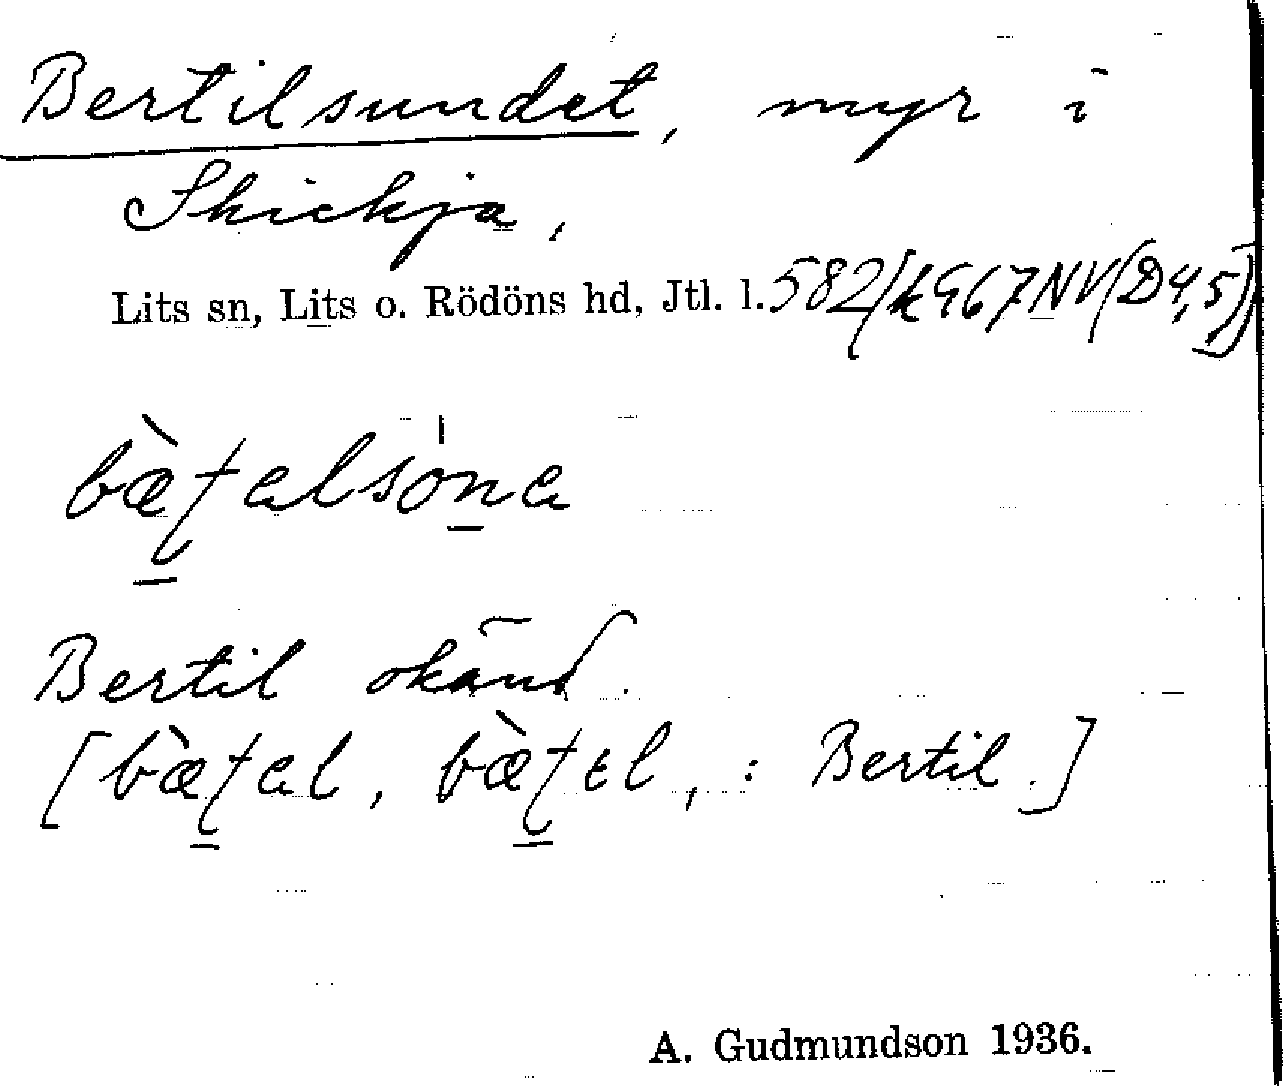 Bertilsundet, myr i
Skickja,
Lits sn, Lits o. Rödöns hd, Jtl. l. 582/k967NV(D4,5)
Bertil okänd.
: Bertil.]
A. Gudmundson 1936.